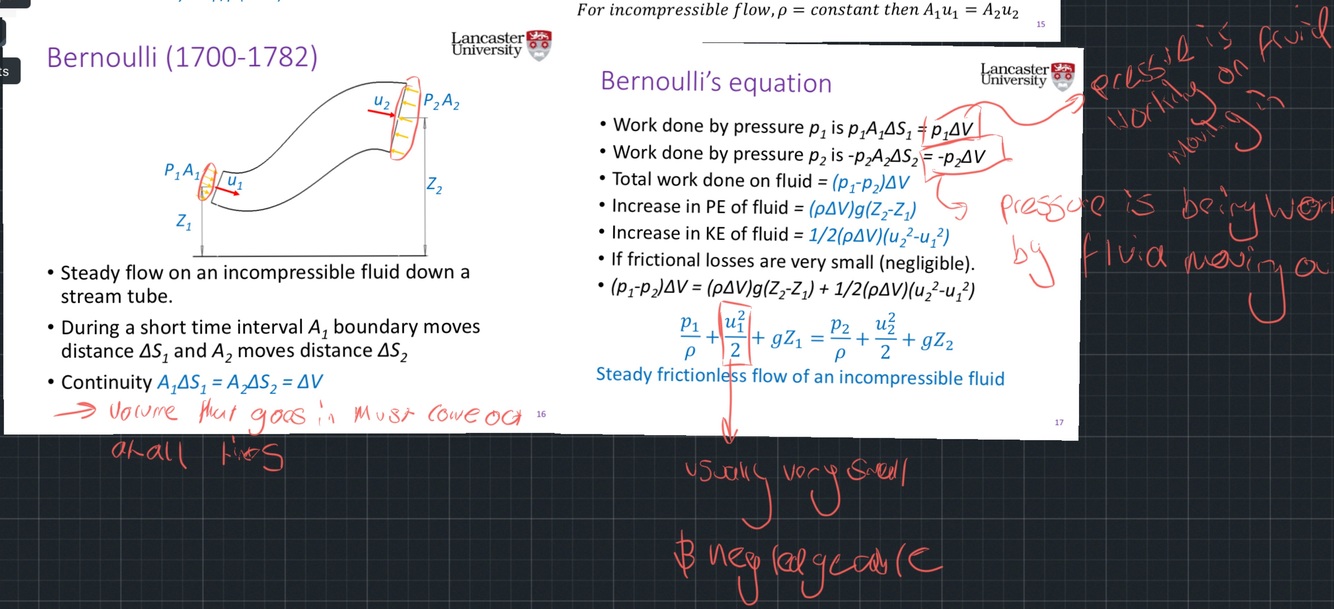 For incompressible flow, ρ = constant then A₁u₁ = A₂u₂
15
ts
Bernoulli (1700-1782)
Lancaster
University
u₂
P₂A₂
P₁A₁
u₁
Z₂
Z₁
• Steady flow on an incompressible fluid down a
stream tube.
• During a short time interval A₁ boundary moves
distance ΔS₁ and A₂ moves distance ΔS₂
• Continuity A₁ΔS₁ = A₂ΔS₂ = ΔV
→ Volume that goes in must come out
16
at all times
Bernoulli's equation
Lancaster
University
• Work done by pressure p₁ is p₁A₁ΔS₁ = p₁ΔV
• Work done by pressure p₂ is -p₂A₂ΔS₂ = -p₂ΔV
• Total work done on fluid = (p₁-p₂)ΔV
• Increase in PE of fluid = (ρΔV)g(Z₂-Z₁)
• Increase in KE of fluid = 1/2(ρΔV)(u₂²-u₁²)
• If frictional losses are very small (negligible).
• (p₁-p₂)ΔV = (ρΔV)g(Z₂-Z₁) + 1/2(ρΔV)(u₂²-u₁²)
p₁/ρ + u₁²/2 + gZ₁ = p₂/ρ + u₂²/2 + gZ₂
Steady frictionless flow of an incompressible fluid
17
pressure is
working on fluid
moving in
pressure is being wor
by fluid moving ou
usually very small
& negledgeable